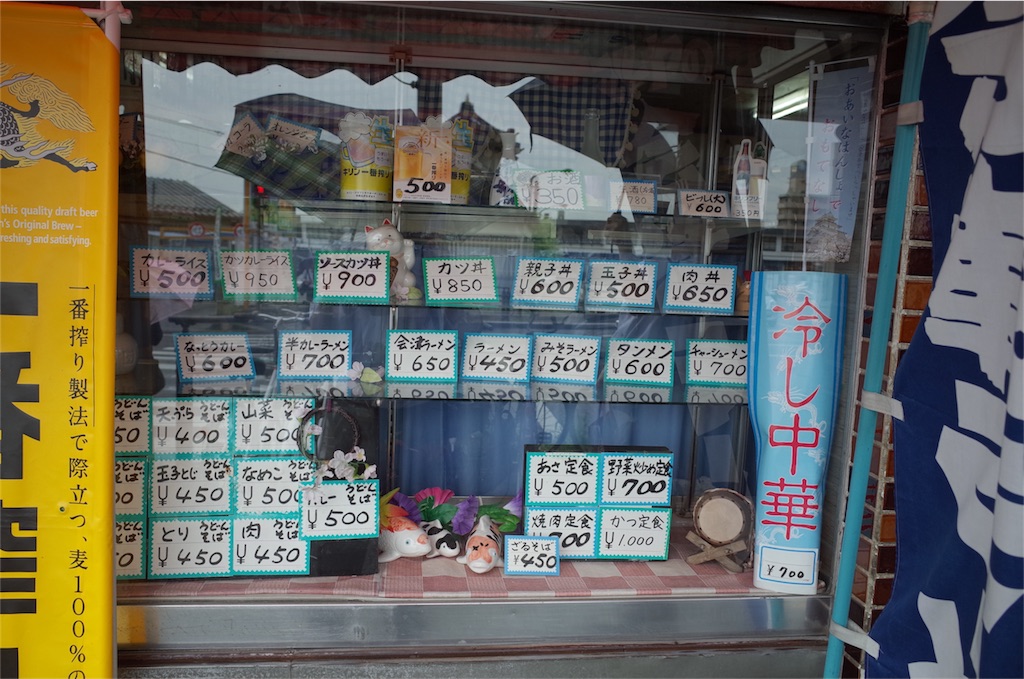 this quality draft beer
n's Original Brew –
reshing and satisfying.
一番搾り製法で際立つ、麦100%の
コーラ
オレンジ
キリン一番搾り
¥500
お酒
¥350
¥780
ビール(大)
¥600
カレーライス
¥500
カツカレーライス
¥950
ソースカツ丼
¥900
カツ丼
¥850
親子丼
¥600
玉子丼
¥500
肉丼
¥650
なっとうカレー
¥600
半カレーラーメン
¥700
会津ラーメン
¥650
ラーメン
¥450
みそラーメン
¥500
タンメン
¥600
チャーシューメン
¥700
うどん
そば
50
天ぷら うどん そば
¥400
山菜 うどん そば
¥500
うどん
そば
00
玉子とじ うどん そば
¥450
なめこ うどん そば
¥500
うどん
そば
00
とり うどん そば
¥450
肉 うどん そば
¥450
カレー うどん そば
¥500
あさ定食
¥500
野菜炒め定食
¥700
焼肉定食
00
かつ定食
¥1,000
ざるそば
¥450
冷し中華
¥700